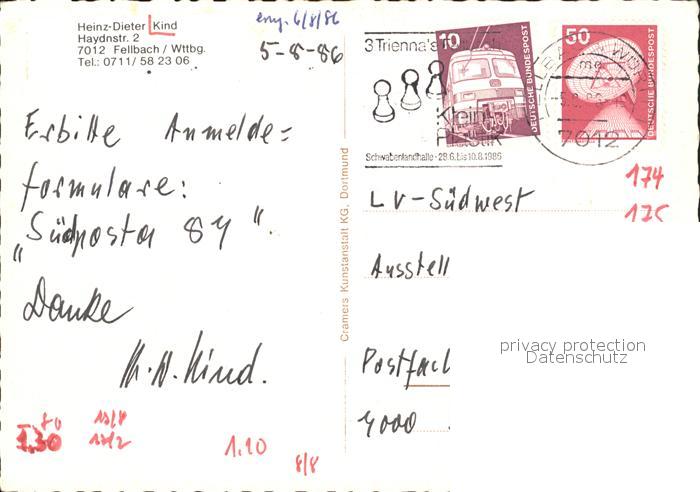 Heinz-Dieter Kind
Haydnstr. 2
7012 Fellbach / Wttbg.
Tel.: 0711/ 58 23 06
eing. 6/8/86
5-8-86
Erbitte Anmelde=
formulare:
"Südposta 87".
Danke
H.D. Kind.
1.30
13/2
1.10
8/8
Cramers Kunstanstalt KG, Dortmund
3 Trienna
Klein
Plastik
Schwabenlandhalle · 28.6. bis 10.8.1986
10
DEUTSCHE BUNDESPOST
50
DEUTSCHE BUNDESPOST
7012
174
175
LV-Südwest
Ausstell
Postfach
7000
privacy protection
Datenschutz